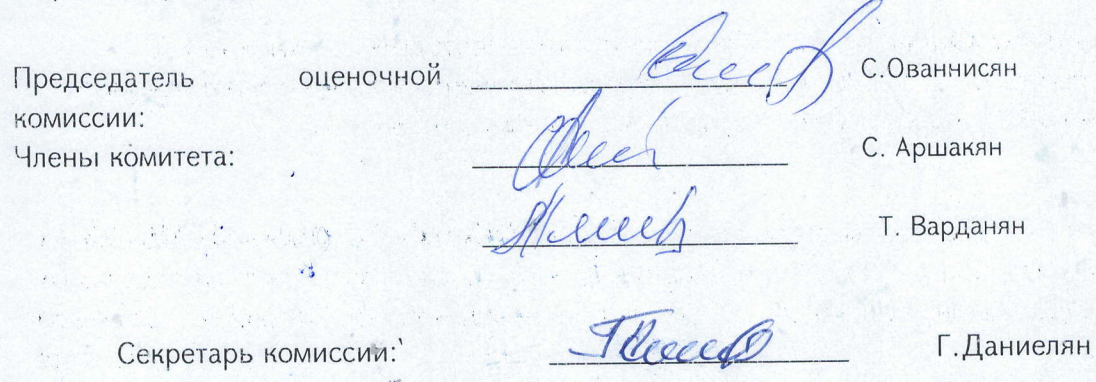 Председатель оценочной С.Ованнисян
комиссии:
Члены комитета: С. Аршакян
Т. Варданян
Секретарь комиссии: Г.Даниелян